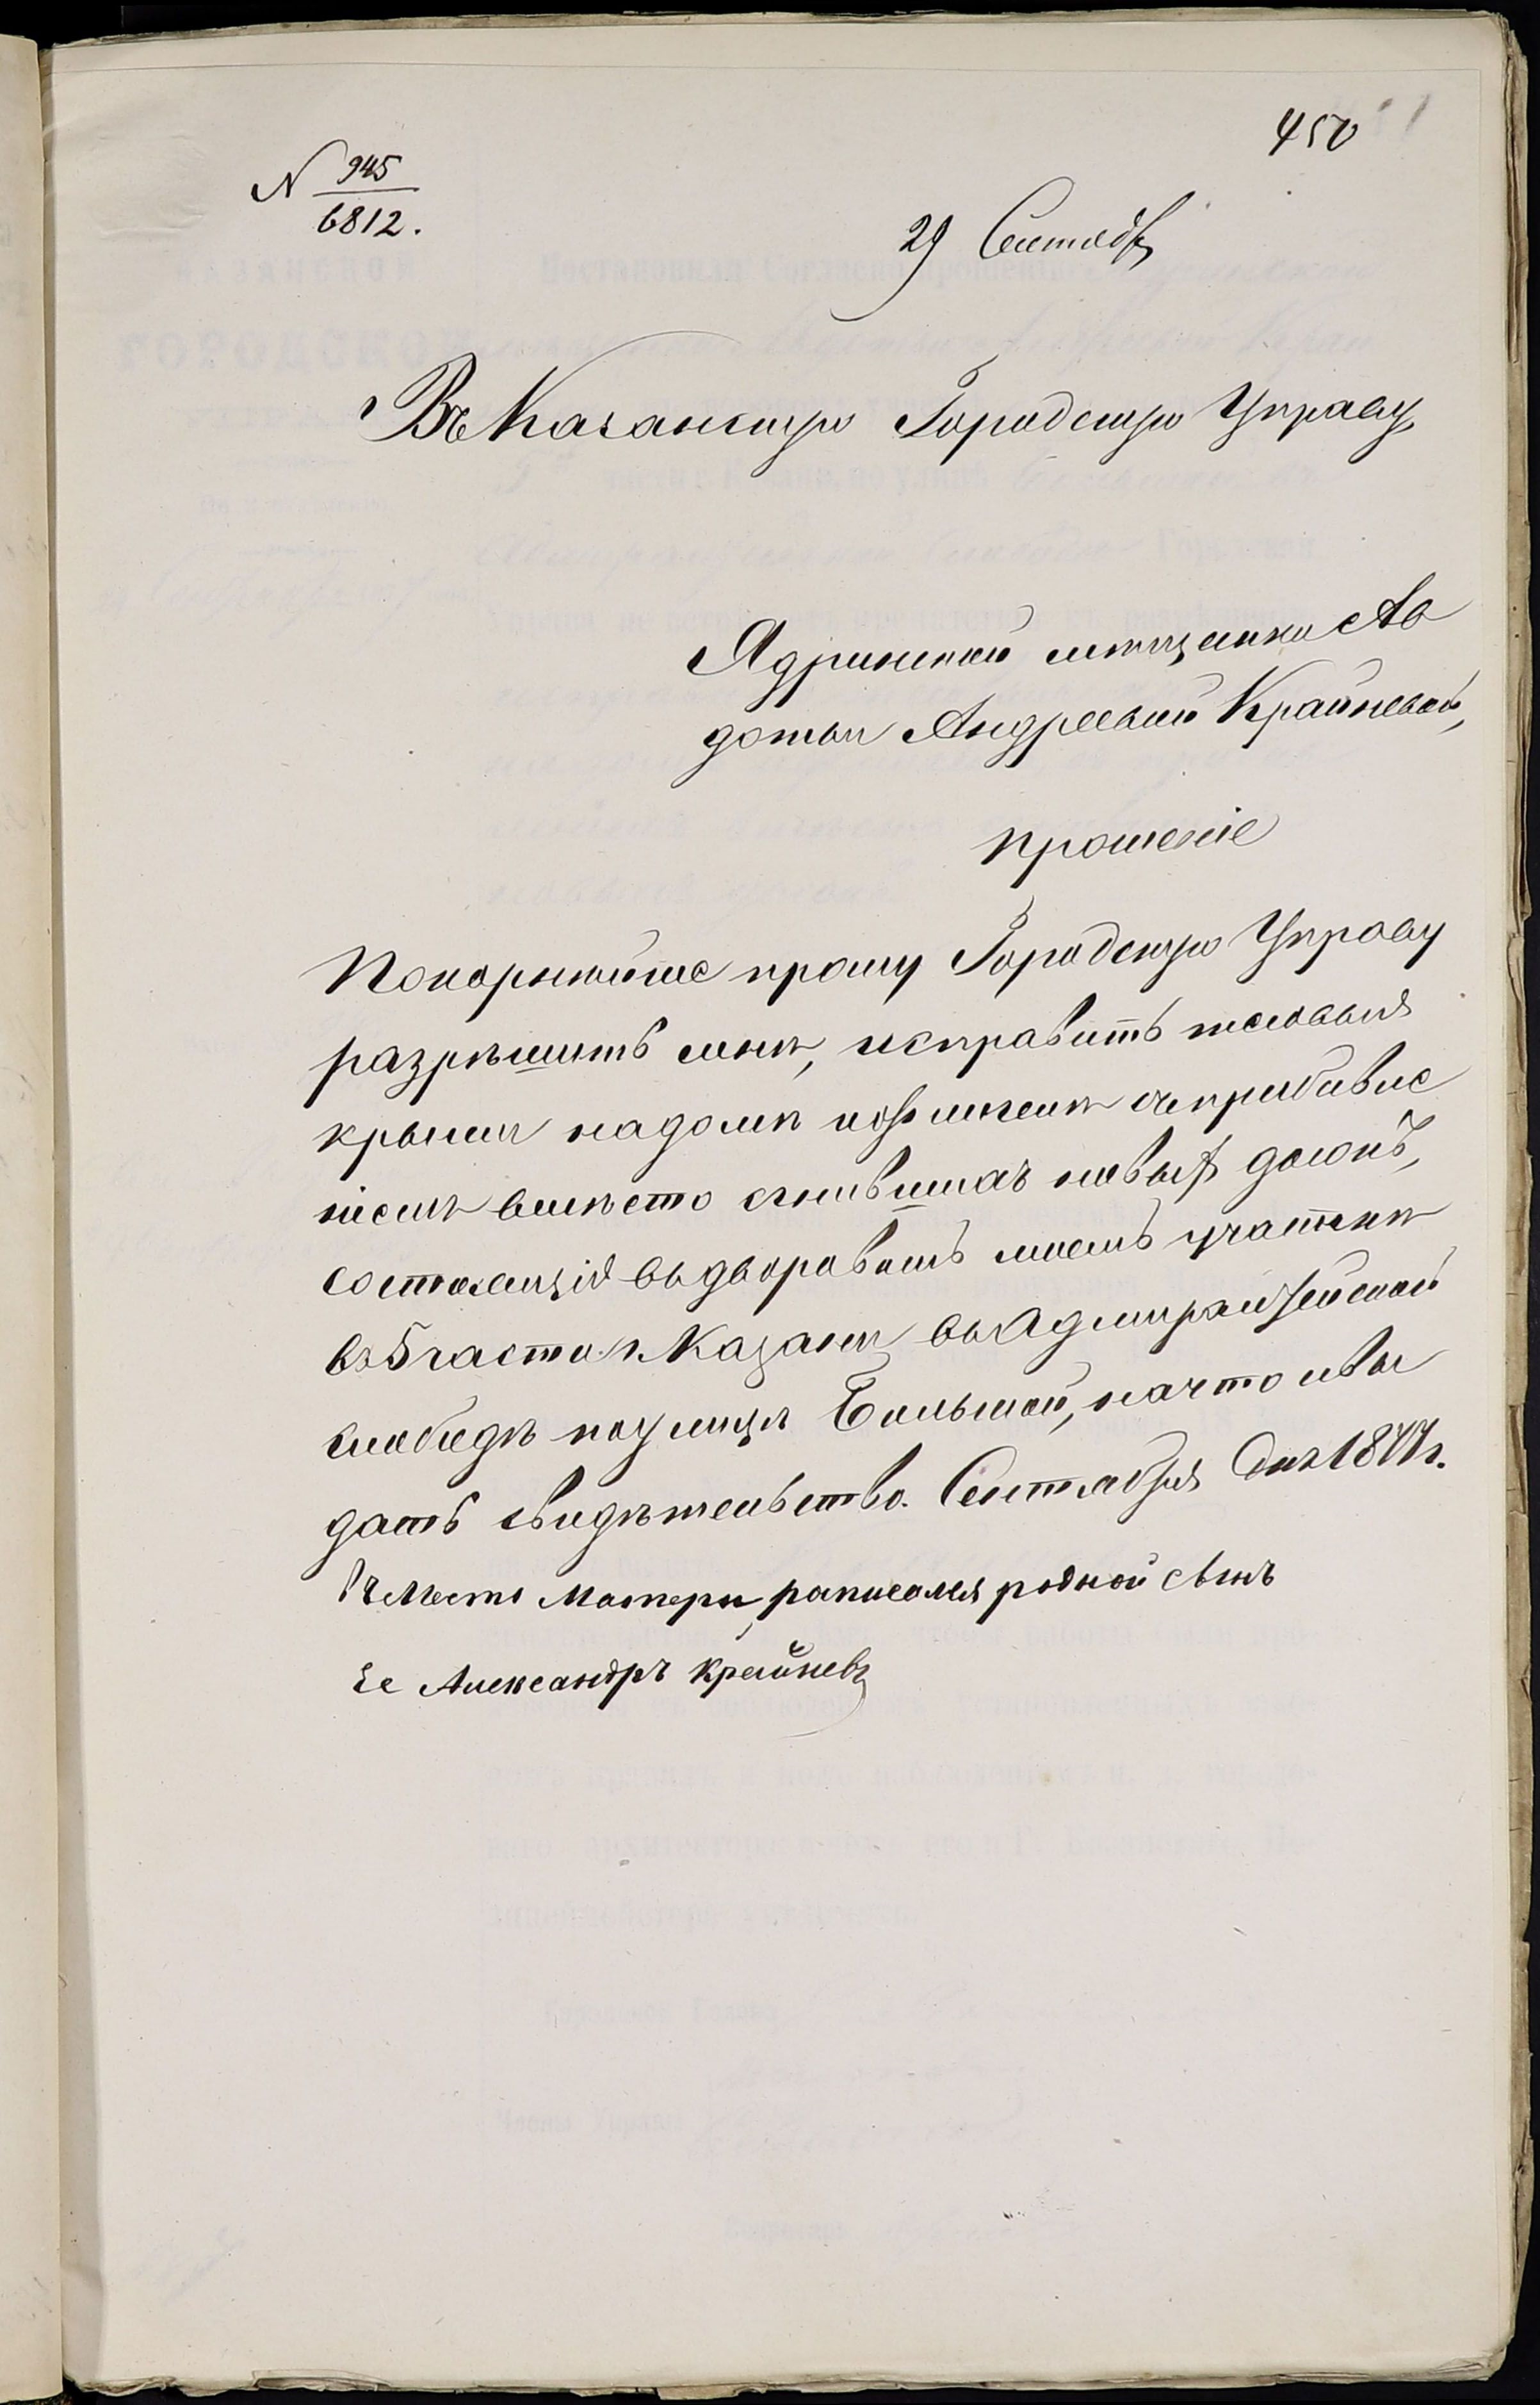 450
N 945
6812.
29 Сентяб
Въ Казанскую Городскую Управу
Ядринской мѣщанки Ав
дотьи Андреевой Крайневой,
прошеніе
Покорнѣйше прошу Городскую Управу
разрѣшить мнѣ, исправить тесовыя
крыши на домѣ и флигелѣ съ прибивле
ніемъ вмѣсто сгнившихъ новыхъ досокъ,
состоящія въ дворовомъ моемъ участкѣ
въ 5 части г. Казани въ Адмиралтейской
слободѣ по улицѣ Большой, на что и вы
дать свидѣтельство. Сентября дня 1877 г.
Въ Место Матери, раписался родной сынъ
Ее Александръ Крайневъ